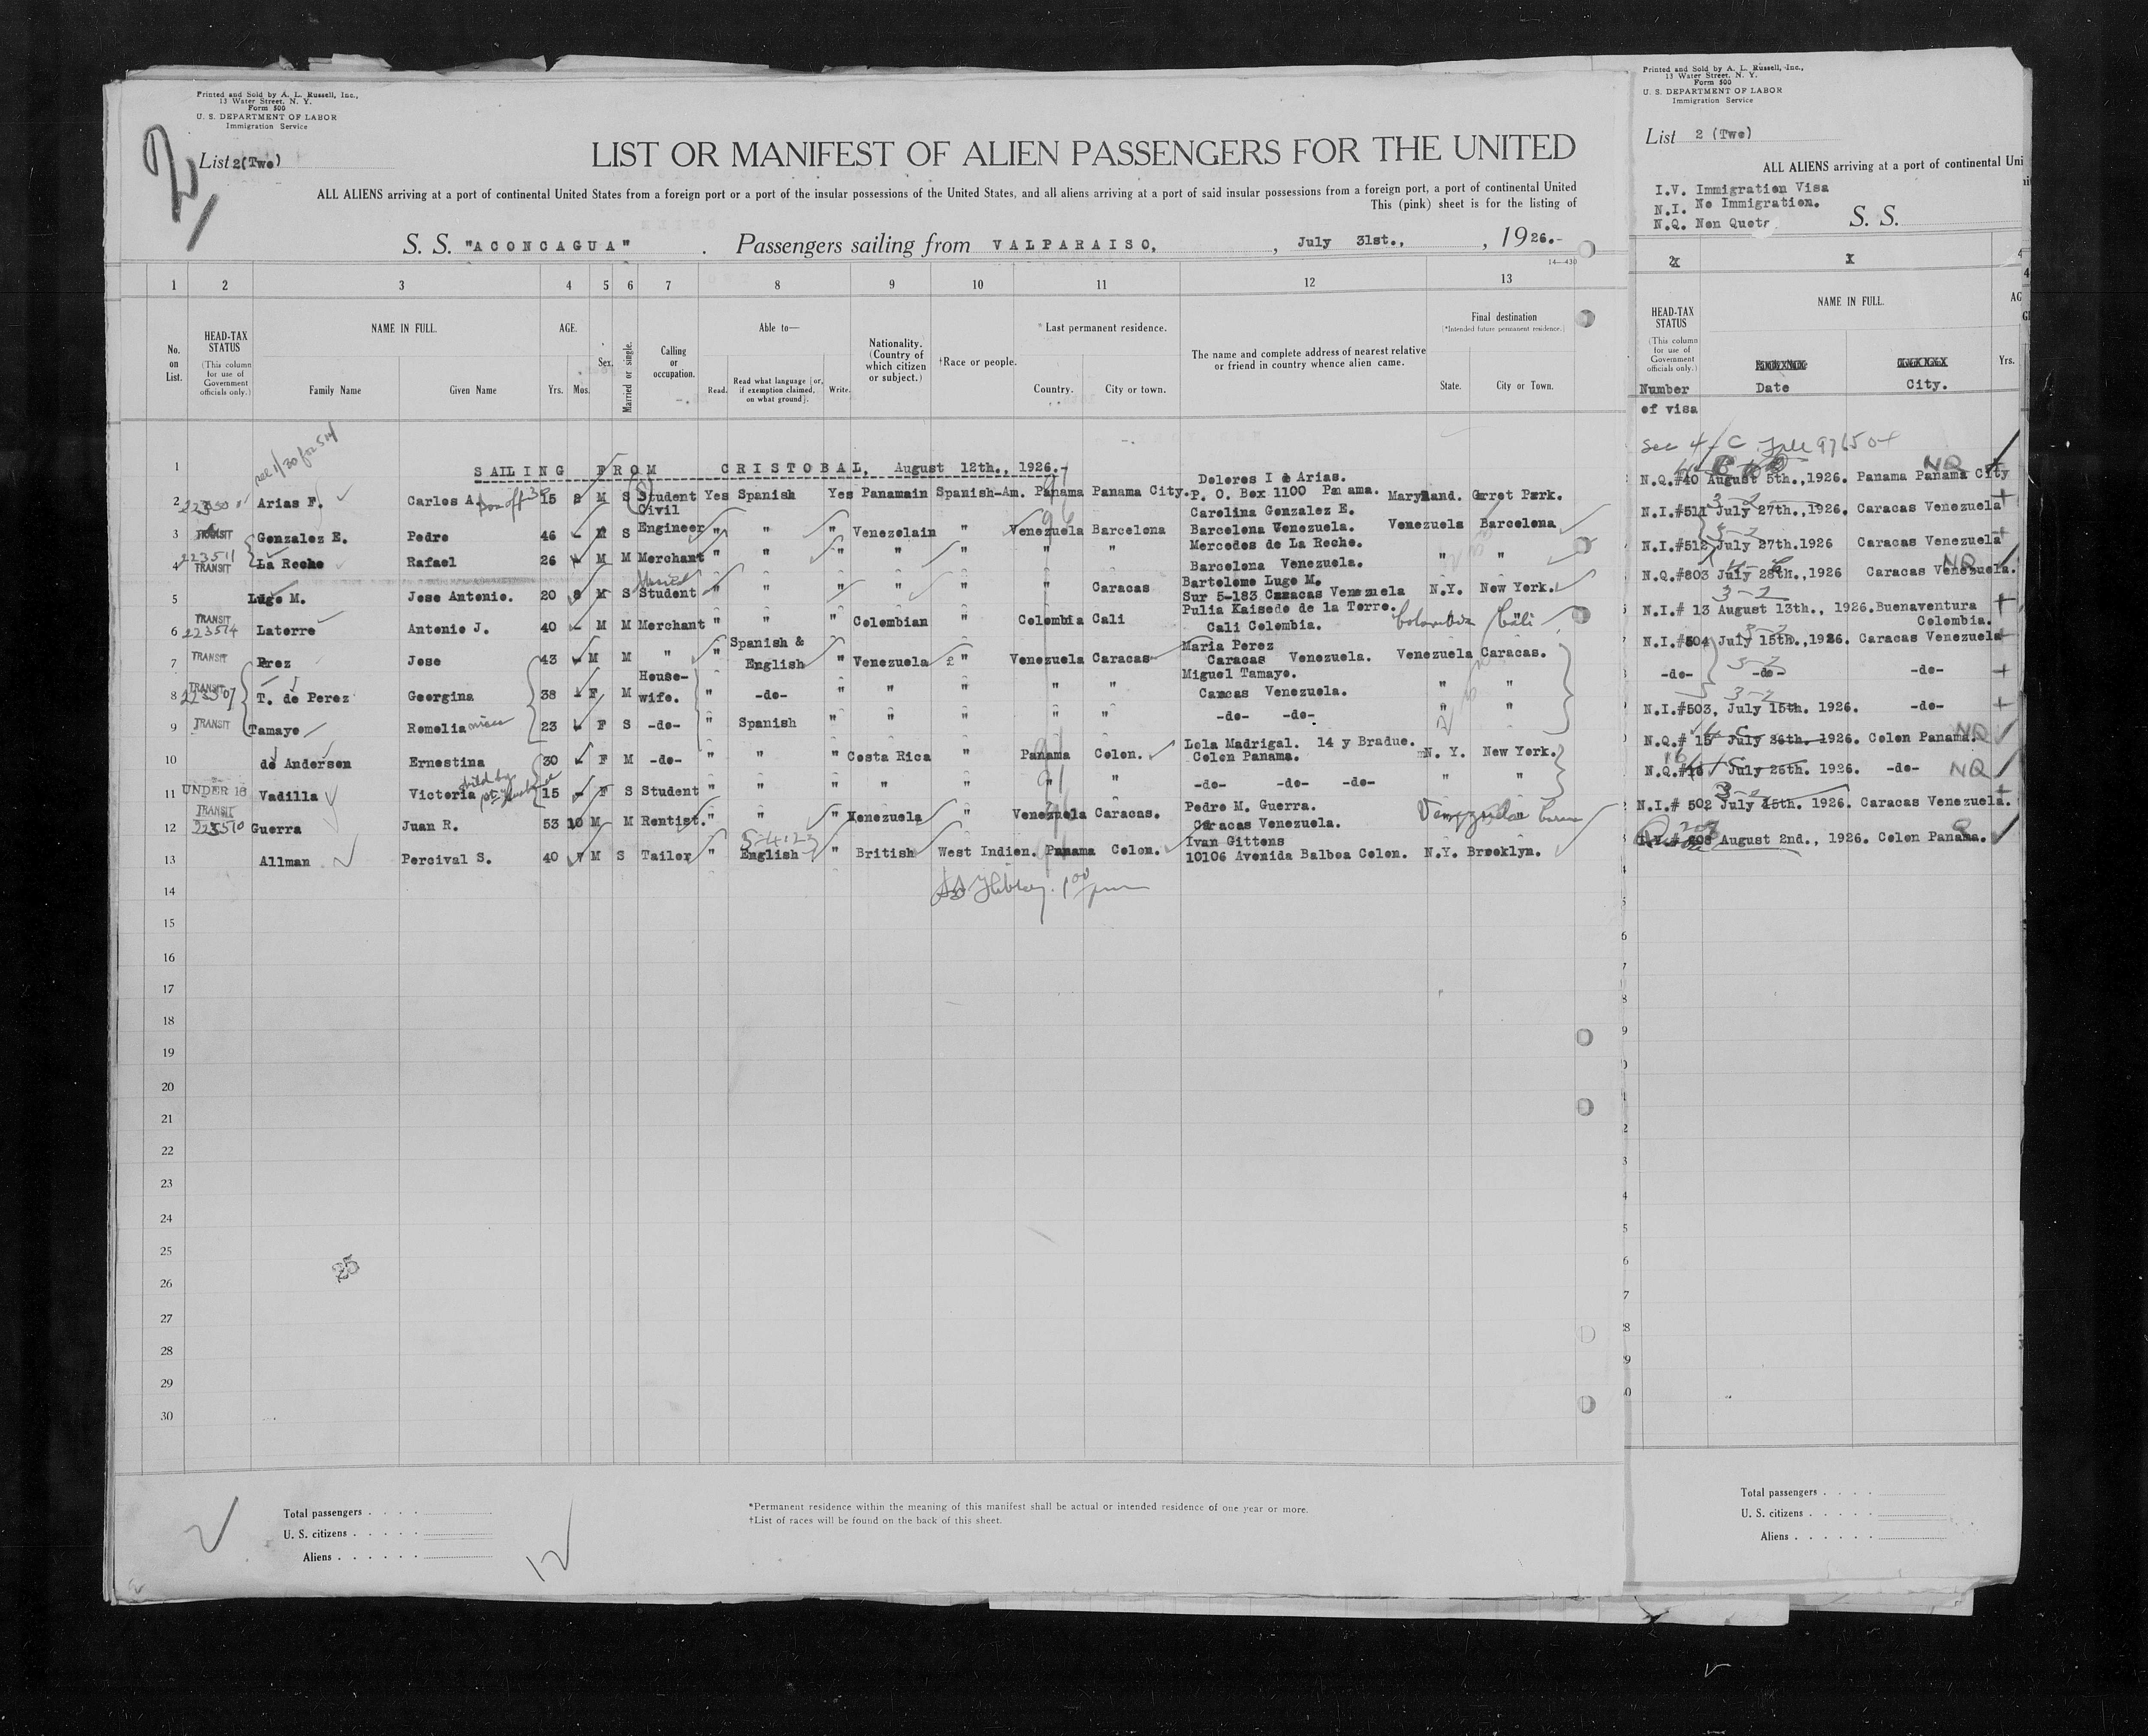 Printed and Sold by A. L. Russell, Inc.,
13 Water Street, N. Y.
Form 500
U. S. DEPARTMENT OF LABOR
Immigration Service
2
List 2(Two)
LIST OR MANIFEST OF ALIEN PASSENGERS FOR THE UNITED
ALL ALIENS arriving at a port of continental United States from a foreign port or a port of the insular possessions of the United States, and all aliens arriving at a port of said insular possessions from a foreign port, a port of continental United
This (pink) sheet is for the listing of
S. S. "ACONCAGUA" . Passengers sailing from VALPARAISO, , July 31st., , 1926.-
14—430
1 2 3 4 5 6 7 8 9 10 11 12 13
No. on List.
HEAD-TAX STATUS
(This column for use of Government officials only.)
NAME IN FULL.
Family Name Given Name
AGE.
Yrs. Mos.
Sex.
Married or single.
Calling or occupation.
Able to—
Read. Read what language [or, if exemption claimed, on what ground]. Write.
Nationality. (Country of which citizen or subject.)
†Race or people.
*Last permanent residence.
Country. City or town.
The name and complete address of nearest relative or friend in country whence alien came.
Final destination
(*Intended future permanent residence.)
State. City or Town.
1 SAILING FROM CRISTOBAL, August 12th., 1926.-
2 Arias F. Carlos A. 15 8 M S Student Yes Spanish Yes Panamain Spanish-Am. Panama Panama City. Dolores I de Arias. P. O. Box 1100 Panama. Maryland. Garret Park.
3 TRANSIT Gonzalez E. Pedro 46 - M S Civil Engineer " " " Venezolain " Venezuela Barcelona Carolina Gonzalez E. Barcelona Venezuela. Venezuela Barcelona
4 223511 TRANSIT La Roche Rafael 26 M M Merchant " " " " " " " Mercedes de La Roche. Barcelona Venezuela. " "
5 Lugo M. Jose Antonio. 20 8 M S Student " " " " " " Caracas Bartolome Lugo M. Sur 5-183 Caracas Venezuela N.Y. New York.
6 TRANSIT 223514 Latorre Antonio J. 40 - M M Merchant " " " Colombian " Colombia Cali Pulia Kaisedo de la Torre. Cali Colombia. Colombia Cali
7 TRANSIT Prez Jose 43 M M " " Spanish & English " Venezuela " Venezuela Caracas Maria Perez Caracas Venezuela. Venezuela Caracas.
8 TRANSIT 223507 T. de Perez Georgina 38 F M House-wife. " -do- " " " " " Miguel Tamayo. Caracas Venezuela. " "
9 TRANSIT Tamayo Romelia niece 23 F S -do- " Spanish " " " " " -do- -do- " "
10 de Anderson Ernestina 30 F M -do- " " " Costa Rica " Panama Colon. Lola Madrigal. 14 y Bradue. Colon Panama. N. Y. New York.
11 UNDER 16 Vadilla Victoria 15 - F S Student " " " " " " " -do- -do- -do- " "
12 TRANSIT 223510 Guerra Juan R. 53 10 M M Rentist. " " " Venezuela " Venezuela Caracas. Pedro M. Guerra. Caracas Venezuela.
13 Allman Percival S. 40 M S Tailor " English " British West Indien. Panama Colon. Ivan Gittens 10106 Avenida Balboa Colon. N.Y. Brooklyn.
14
15
16
17
18
19
20
21
22
23
24
25
26
27
28
29
30
25
Total passengers . . . .
U. S. citizens . . . . .
Aliens . . . . . .
12
*Permanent residence within the meaning of this manifest shall be actual or intended residence of one year or more.
†List of races will be found on the back of this sheet.
Printed and Sold by A. L. Russell, Inc.,
13 Water Street, N. Y.
Form 500
U. S. DEPARTMENT OF LABOR
Immigration Service
List 2 (Two)
ALL ALIENS arriving at a port of continental Uni
I.V. Immigration Visa
N.I. No Immigration.
N.Q. Non Quota
S. S.
HEAD-TAX STATUS
(This column for use of Government officials only.)
NAME IN FULL.
Yrs.
Number of visa Date City.
N.Q.#40 August 5th.,1926. Panama Panama City
N.I.#511 July 27th.,1926. Caracas Venezuela
N.I.#512 July 27th.1926 Caracas Venezuela
N.Q.#803 July 28th.,1926 Caracas Venezuela.
N.I.# 13 August 13th., 1926. Buenaventura Colombia.
N.I.#504 July 15th.,1926. Caracas Venezuela
-do- -do- -do-
N.I.#503, July 15th. 1926. -do-
N.Q.# 15 July 26th. 1926. Colon Panama. NQ
N.Q.#16 July 26th. 1926. -do- NQ
N.I.# 502 July 15th. 1926. Caracas Venezuela.
August 2nd., 1926. Colon Panama.
Total passengers . . . .
U. S. citizens . . . . .
Aliens . . . . . .